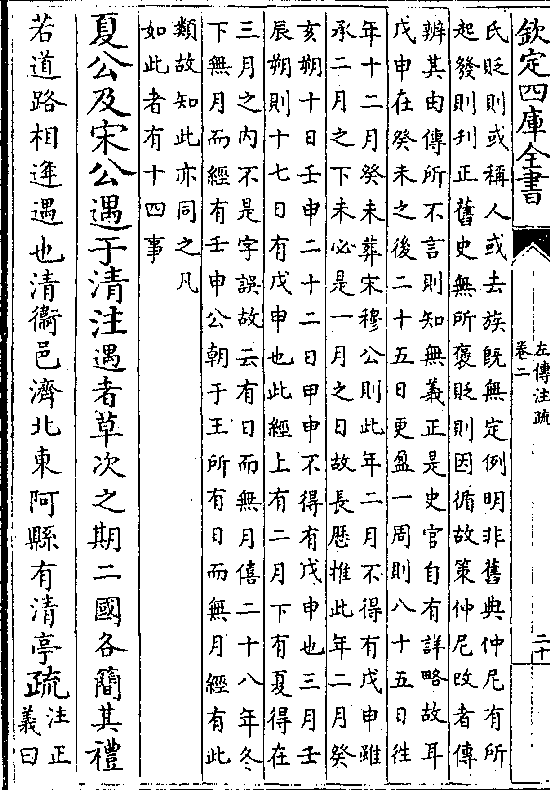 欽定四庫全書
左傳注疏
卷二
二十
氏貶則或稱人或去族既無定例明非舊典仲尼有所
起發則刋正舊史無所褒貶則因循故策仲尼改者傳
辨其由傳所不言則知無義正是史官自有詳略故耳
戊申在癸未之後二十五日更盈一周則八十五日往
年十二月癸未葬宋穆公則此年二月不得有戊申雖
承二月之下未必是一月之日故長厯推此年二月癸
亥朔十日壬申二十二日甲申不得有戊申也三月壬
辰朔則十七日有戊申也此經上有二月下有夏得在
三月之內不是字誤故云有日而無月僖二十八年冬
下無月而經有壬申公朝于王所有日而無月經有此
類故知此亦同之凡
如此者有十四事
夏公及宋公遇于清注遇者草次之期二國各簡其禮
若道路相逢遇也清衞邑濟北東阿縣有清亭疏注正
義曰